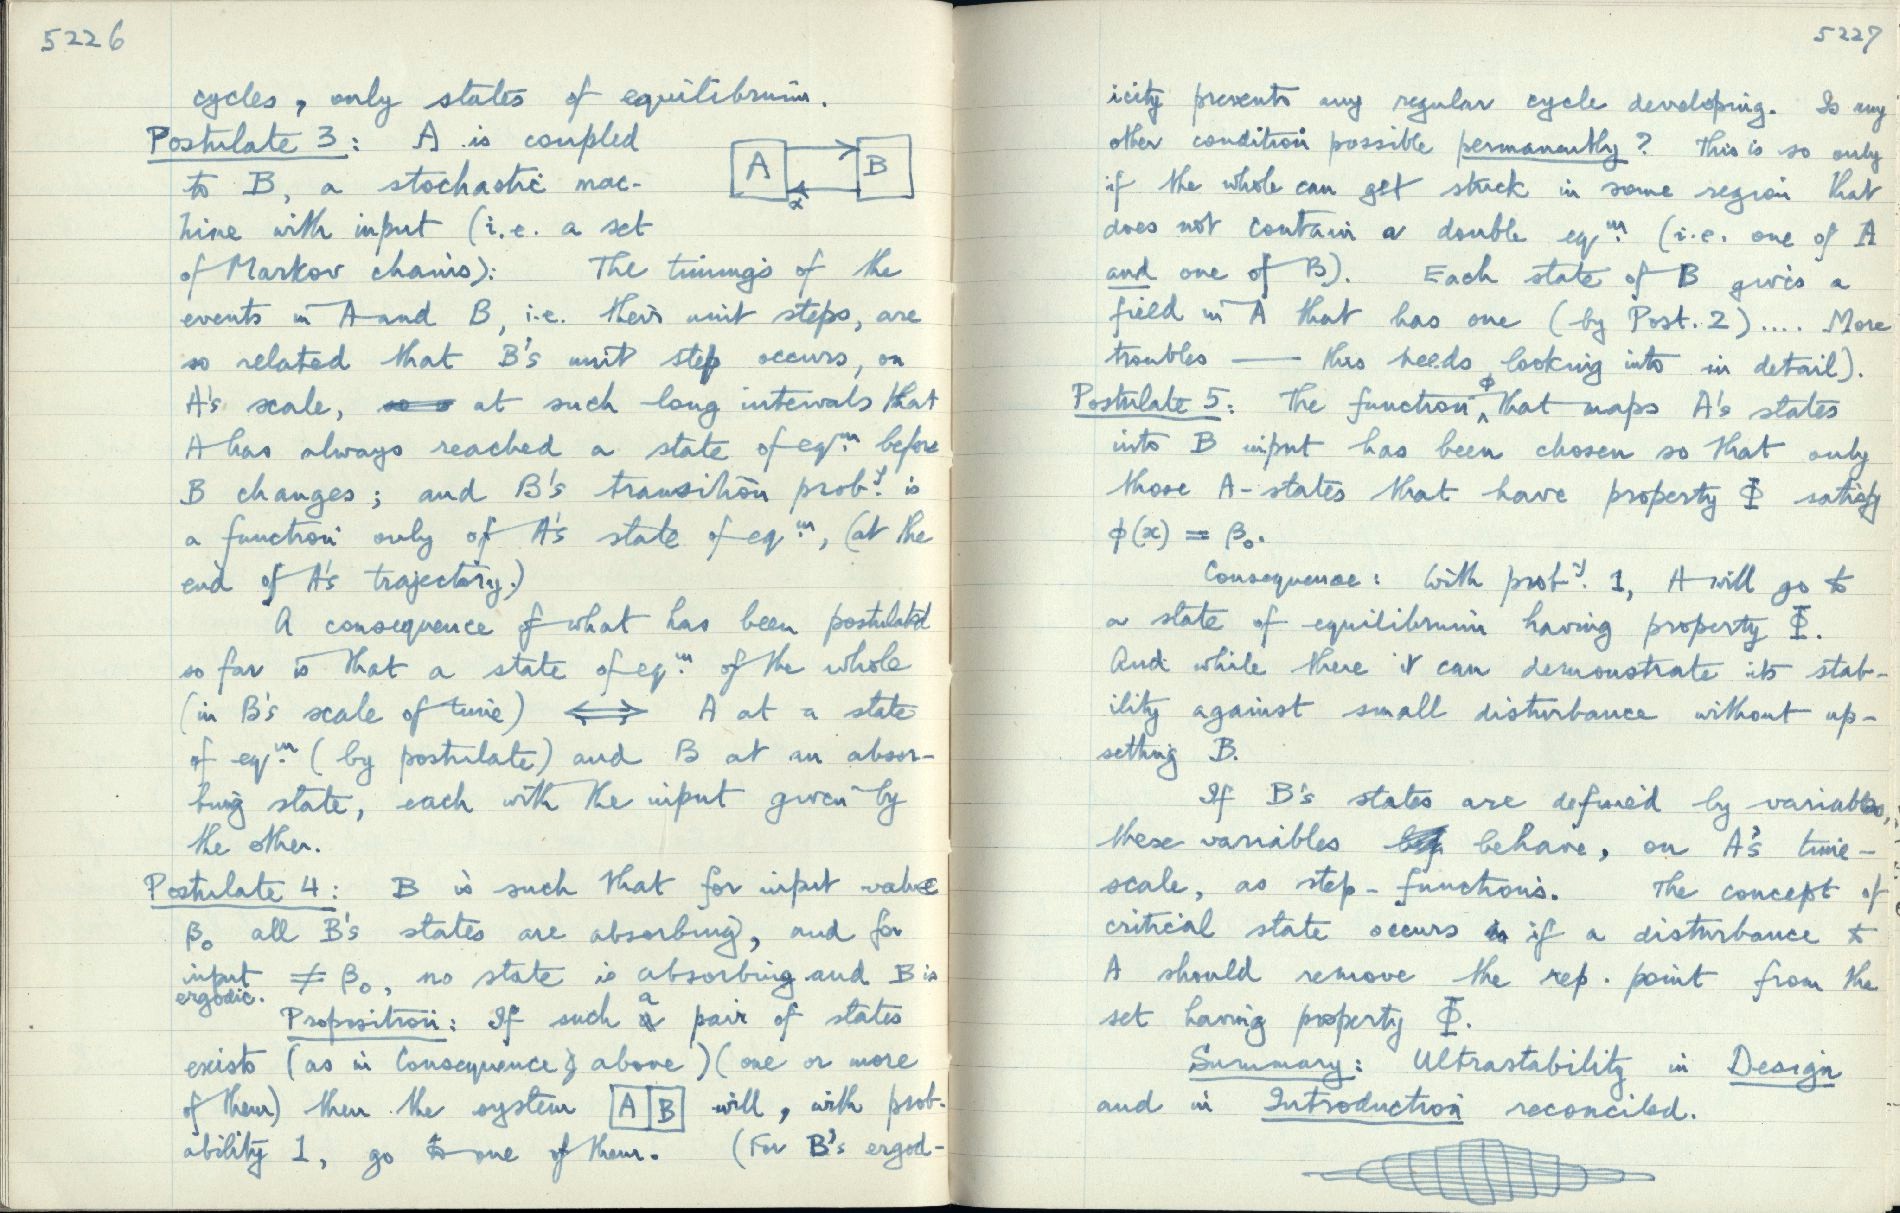 5226
cycles, only states of equilibrium.
Postulate 3: A is coupled
to B, a stochastic mac-
hine with input (i.e. a set
of Markov chains): The timings of the
events in A and B, i.e. their unit steps, are
so related that B's unit step occurs, on
A's scale, at such long intervals that
A has always reached a state of eqm. before
B changes; and B's transition proby. is
a function only of A's state of eqm., (at the
end of A's trajectory.)
A consequence of what has been postulated
so far is that a state of eqm. of the whole
(in B's scale of time) ⟺ A at a state
of eqm. (by postulate) and B at an absor-
bing state, each with the input given by
the other.
Postulate 4: B is such that for input value
β₀ all B's states are absorbing, and for
input ≠ β₀, no state is absorbing and B is
ergodic.
Proposition: If such a pair of states
exists (as in Consequence above) (one or more
of them) then the system A B will, with prob-
ability 1, go to one of them. (For B's ergod-
A B
x
5227
icity prevents any regular cycle developing. Is any
other condition possible permanently? This is so only
if the whole can get stuck in some region that
does not contain a double eqm. (i.e. one of A
and one of B). Each state of B gives a
field in A that has one (by Post. 2).... More
troubles — this needs looking into in detail).
Postulate 5: The function ϕ that maps A's states
into B input has been chosen so that only
those A-states that have property Φ satisfy
ϕ(x) = β₀.
Consequence: With proby. 1, A will go to
a state of equilibrium having property Φ.
And while there it can demonstrate its stab-
ility against small disturbance without up-
setting B.
If B's states are defined by variables,
these variables behave, on A's time-
scale, as step-functions. The concept of
critical state occurs if a disturbance to
A should remove the rep. point from the
set having property Φ.
Summary: Ultrastability in Design
and in Introduction reconciled.